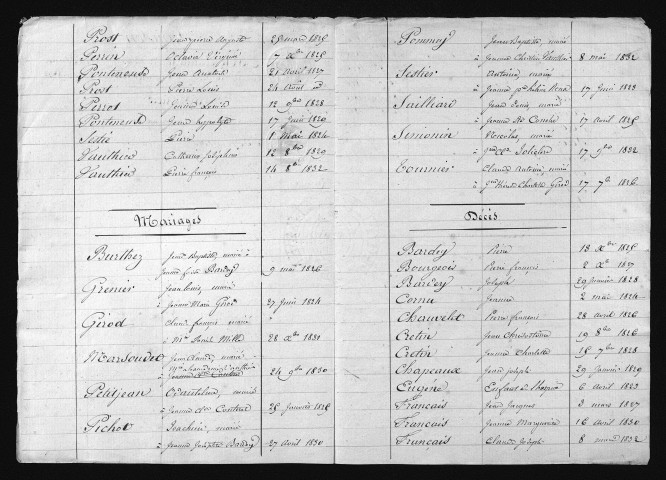 Prost Jean pierre auguste 29 mars 1826
Perrin Octavie Virginie 7 Xbre 1826
Pontineud Jean Anatole 21 avril 1827
Prost Pierre Louis 24 avril id
Perrot Louis 12 9bre 1828
Pontineud Jean hyppolyte 17 juin 1820
Sestie Pierre 1 Mai 1824
Vauthier Catherine joséphine 12 8bre 1820
Vauthier Pierre françois 14 8bre 1832
Mariages
Burthez Jean Baptiste, marié
à Jeanne Bardey 9 mai 1826
Grenier Jean Louis, marié
à Jeanne Marie Girod 27 Juin 1824
Girod françois marié
à Mie 28 Xbre 1831
Marsoudet Jean Claude, marié
à Jeanne 24 9bre 1830
Petitjean marié
à Jeanne 26 Janvier 1826
Pichot Joachim, marié
à Jeanne Josephte 27 avril 1830
Pommey Jean Baptiste, marié
à Jeanne 8 mai 1832
Sestier Antoine, marié
à Jeanne 17 Juin 1823
Tailliard Jean Denis, marié
à Jeanne 17 avril 1826
Simonin Nicolas, marié
à 17 9bre 1832
Tournier Claude Antoine, marié
à Charlotte Girod 17 7bre 1826
Décès
Bardey Pierre 18 Xbre 1826
Bourgeois Pierre françois 2 Xbre 1827
Bardey Joseph 29 janvier 1828
Cornu Jeanne 2 mai 1824
Chauvelot Pierre françois 28 avril 1826
Cretin Jean 19 8bre 1826
Cretin Jeanne Charlotte 15 7bre 1828
Chapeaux Jean joseph 29 Janvier 1829
Eugène Enfant de l'hospice 6 avril 1823
Français Jean Jacques 3 mars 1827
Français Jeanne Marguerite 16 avril 1830
Français Claude Joseph 8 1832